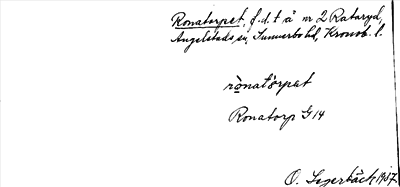 Ronatorpet, f.d. t å nr 2 Rataryd,
Angelstads sn, Sunnerbo hd, Kronob. l.
rònatòrpat
Ronatorp G 14
O. Segerbäck 1937